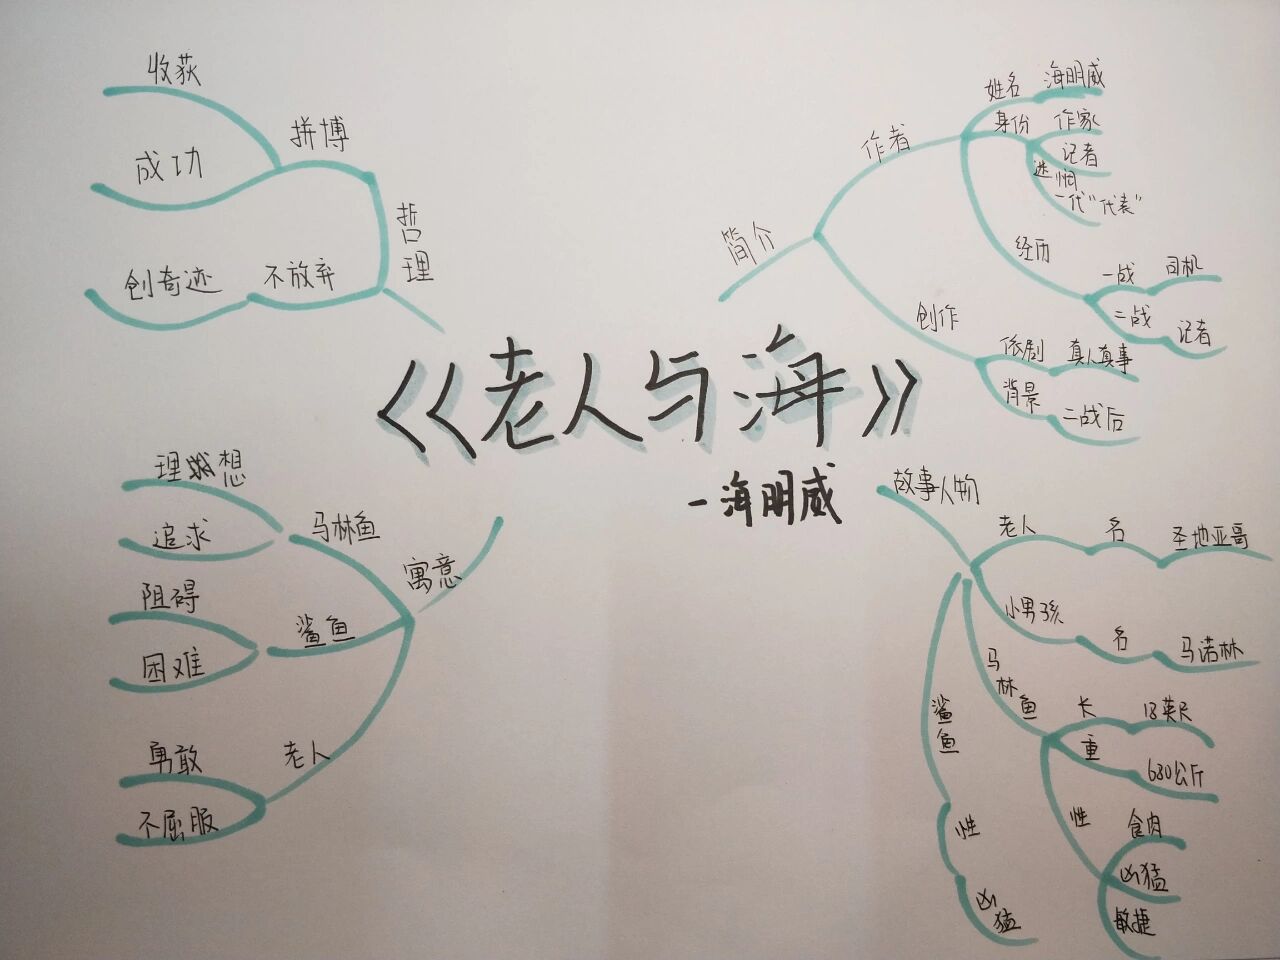 《老人与海》
-海明威
简介
作者
姓名 海明威
身份 作家
记者
迷惘
一代"代表"
经历
一战 司机
二战 记者
创作
依剧 真人真事
背景 二战后
故事人物
老人 名 圣地亚哥
小男孩 名 马诺林
马林鱼
长 18英尺
重 680公斤
性 食肉
凶猛
敏捷
鲨鱼
性
凶猛
寓意
马林鱼
理想
追求
鲨鱼
阻碍
困难
老人
勇敢
不屈服
哲理
拼博
收获
成功
不放弃
创奇迹